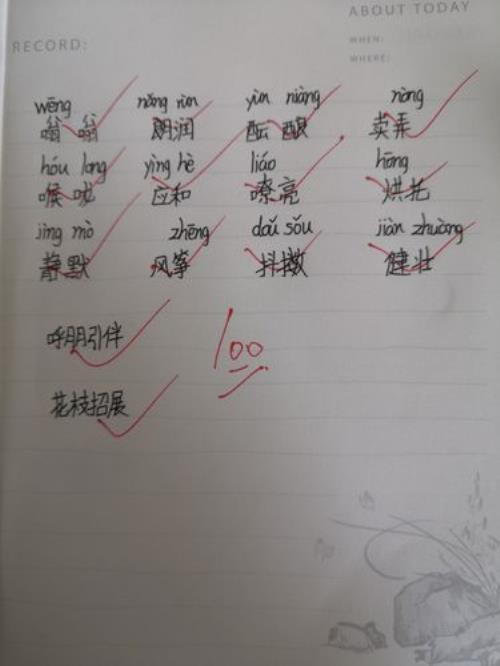 ABOUT TODAY
RECORD:
WHEN:
WHERE:
wēng nǎng rùn yùn niàng nòng
嗡嗡 朗润 酝酿 卖弄
hóu long yìng hè liáo hōng
喉咙 应和 嘹亮 烘托
jìng mò zhēng dǒu sǒu jiàn zhuàng
静默 风筝 抖擞 健壮
呼朋引伴
100
花枝招展